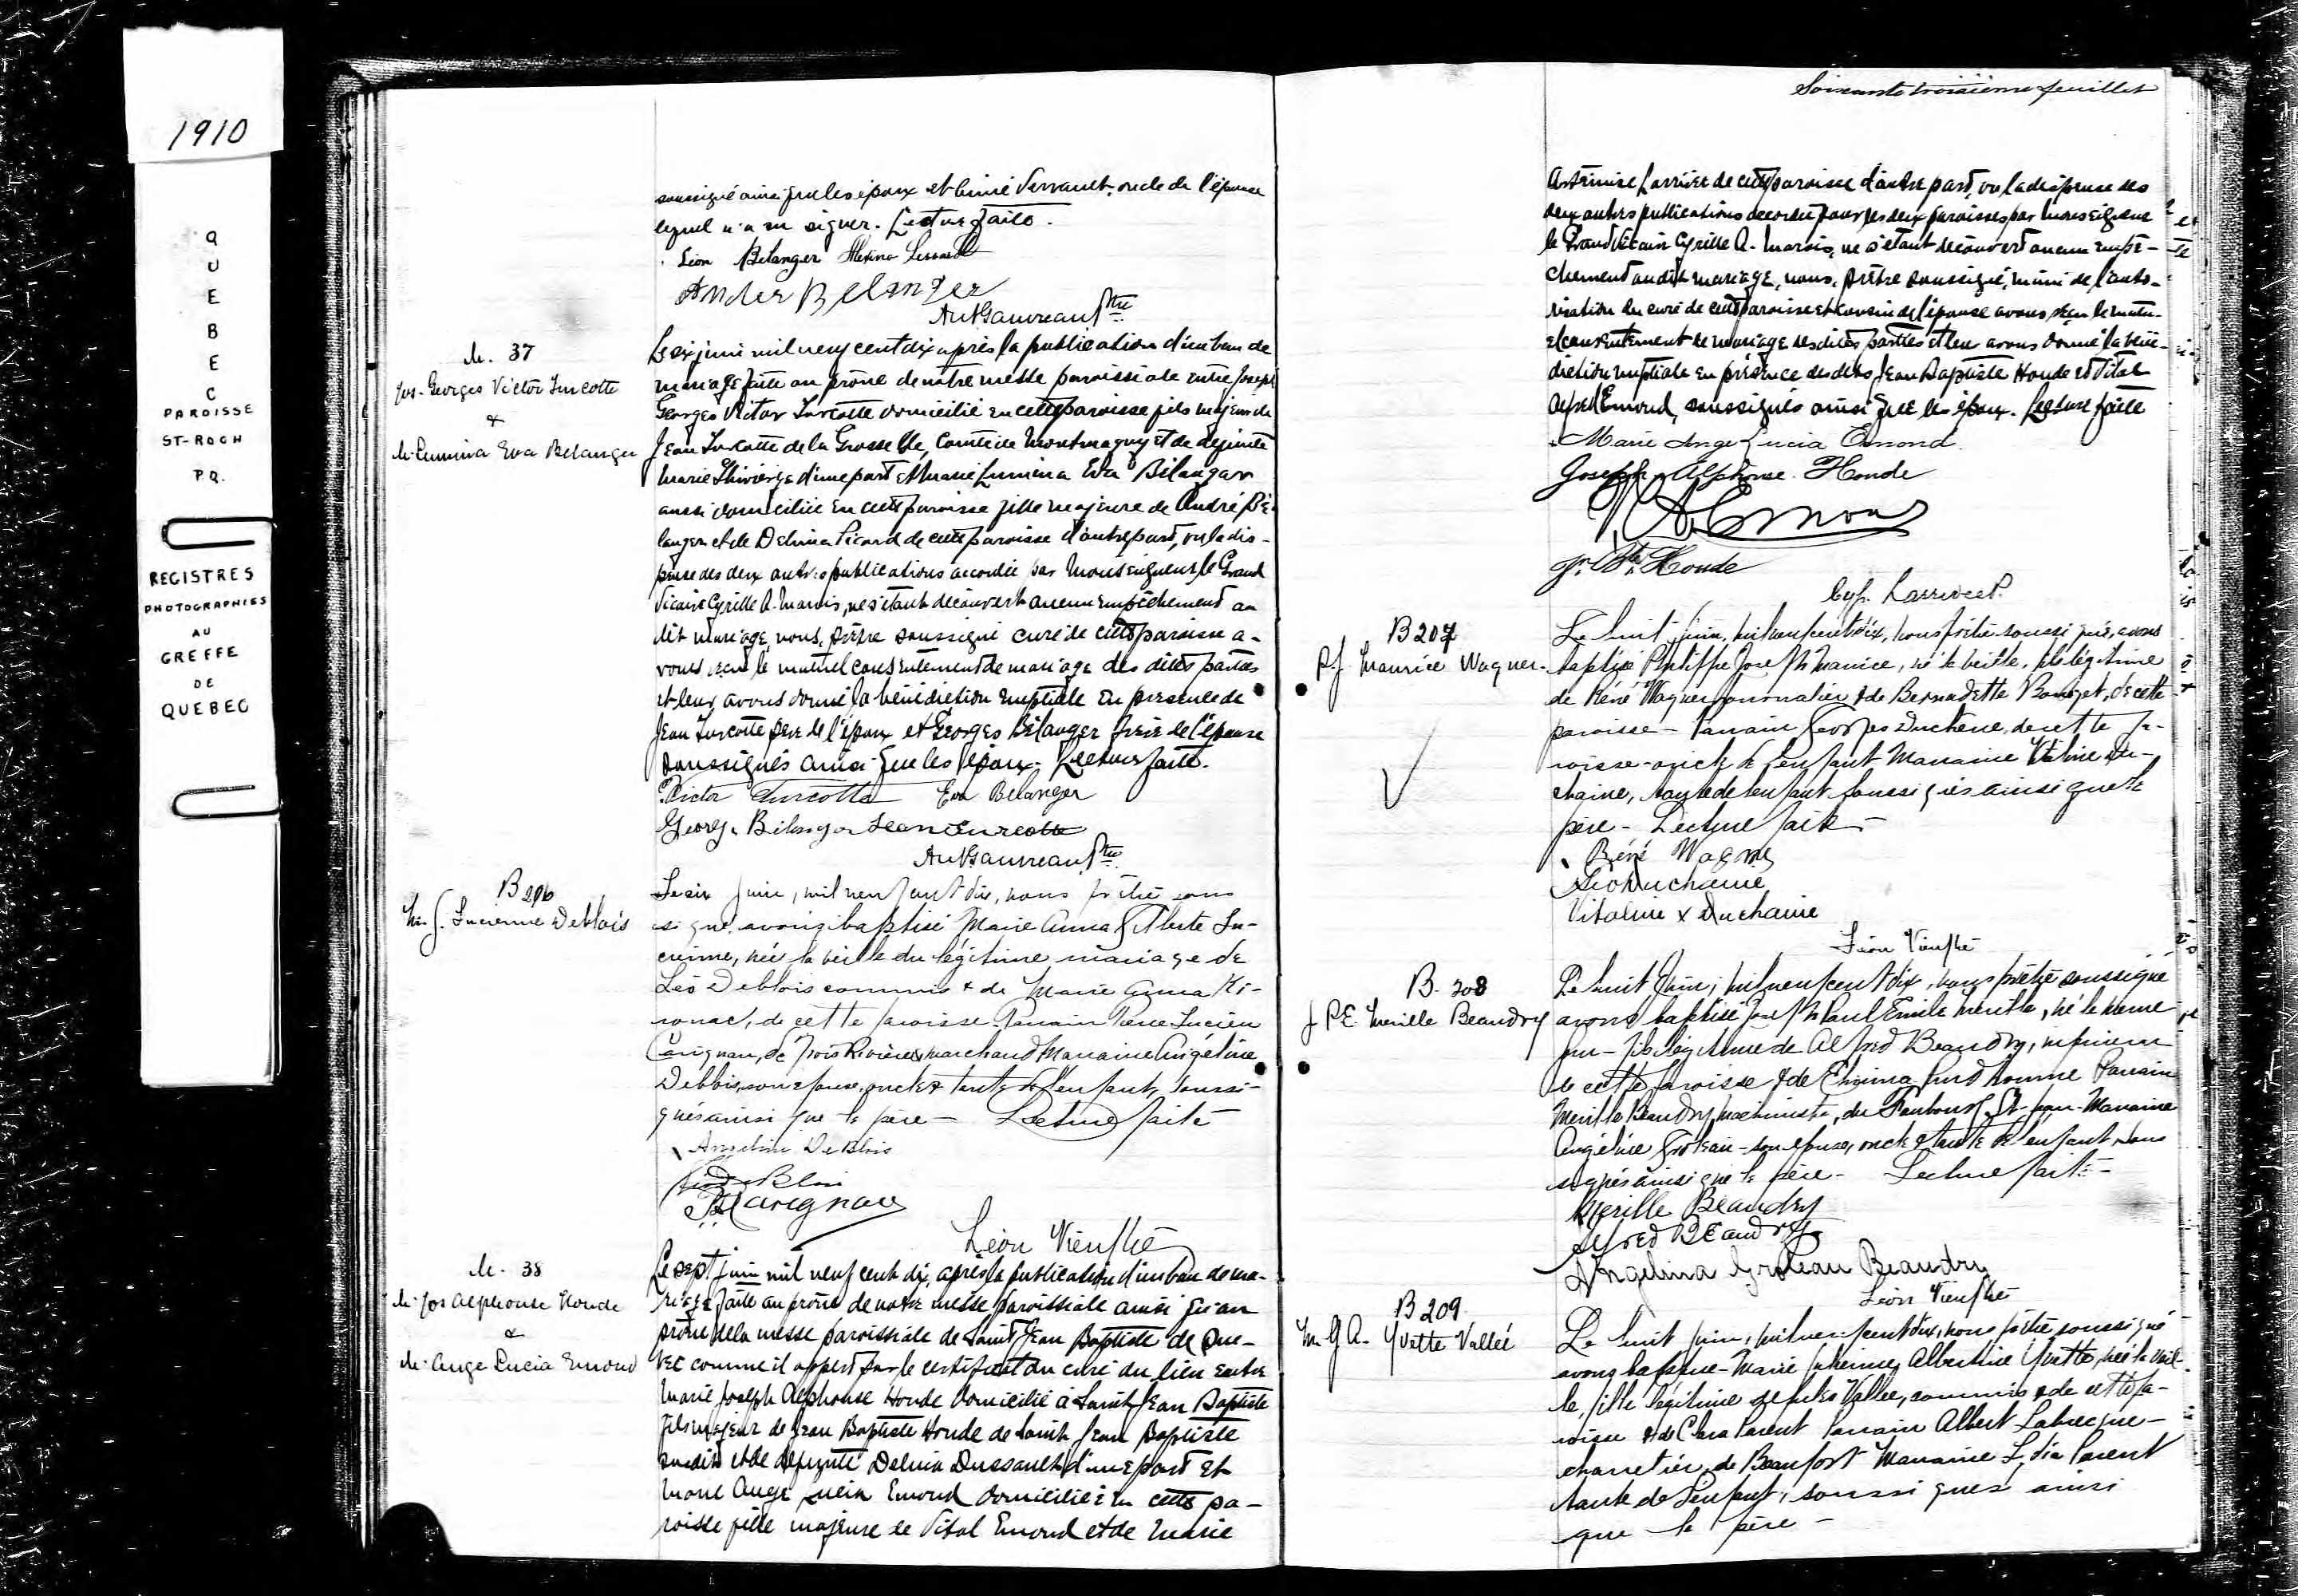 1910
QUEBEC
PAROISSE
ST-ROCH
P.Q.
REGISTRES
PHOTOGRAPHIES
AU
GREFFE
DE
QUEBEC
soussigné ainsi que les époux et Aimé Verrault, oncle de l'épouse
lequel n'a su signer. Lecture faite.
Léon Bélanger Alexina
Ander Belanger
Ant Gauvreau Ptre
M. 37
Jos. Georges Victor Turcotte
&
M. Lumina Eva Belanger
Le six juin mil neuf cent dix après la publication d'un ban de
mariage faite au prône de notre messe paroissiale entre Joseph
Georges Victor Turcotte domicilié en cette paroisse fils majeur de
Jean Turcotte de la Grosse Ile, Comté de Montmagny et de défunte
Marie Thivierge d'une part et Marie Lumina Eva Bélanger
aussi domiciliée en cette paroisse fille majeure de André Bé-
langer et de Delima Picard de cette paroisse d'autre part, vu la dis-
pense des deux autres publications accordée par Monseigneur le Grand
Vicaire Cyrille A. Marois, ne s'étant découvert aucun empêchement au
dit mariage, nous, prêtre soussigné curé de cette paroisse a-
vons reçu le mutuel consentement de mariage des dites parties
et leur avons donné la bénédiction nuptiale en présence de
Jean Turcotte père de l'époux et Georges Bélanger frère de l'épouse
soussignés ainsi que les époux. Lecture faite.
Victor Turcotte Eva Belanger
George Bélanger Jean Turcotte
Ant Gauvreau Ptre
B 206
M. J. Lucienne Deblois
Le six Juin, mil neuf cent dix, nous prêtre sous
signé, avons baptisé Marie Anna Gilberte Lu-
cienne, née la veille du légitime mariage de
Léo Deblois commis & de Marie Anna Ki-
rouac, de cette paroisse. Parrain Pierre Lucien
Carignan, de Trois Rivières marchand Marraine Angéline
Deblois, son épouse, oncle & tante de l'enfant, soussi-
gnés ainsi que le père - Lecture faite
Angelina DeBlois
Carignan
Léon Vien Ptre
M. 38
M. Jos Alphonse Houde
&
M. Ange Lucia Emond
Le sept juin mil neuf cent dix, après la publication d'un ban de ma-
riage faite au prône de notre messe paroissiale ainsi qu'au
prône de la messe paroissiale de Saint Jean Baptiste de Qué-
bec comme il appert par le certificat du curé du lieu entre
Marie Joseph Alphonse Houde domicilié à Saint Jean Baptiste
fils majeur de Jean Baptiste Houde de Saint Jean Baptiste
susdit et de défunte Delvina Dussault d'une part et
Marie Ange Lucia Emond domiciliée en cette pa-
roisse fille majeure de Vital Emond et de Marie
Soixante troisième feuillet
Artémise Larrivée de cette paroisse d'autre part, vu la dispense des
deux autres publications accordée pour les deux paroisses par Monseigneur
le Grand Vicaire Cyrille A. Marois, ne s'étant découvert aucun empê-
chement au dit mariage, nous, prêtre soussigné, muni de l'auto-
risation du curé de cette paroisse et cousin de l'épouse avons reçu le mutu-
el consentement de mariage des dites parties et leur avons donné la béné-
diction nuptiale en présence des dits Jean Baptiste Houde et Vital
Alfred Emond, soussignés ainsi que les époux. Lecture faite
Marie Ange Lucia Emond
Joseph Alphonse Houde
V A Emond
Jn. Bte. Houde
Cyp. Larrivée P.
B 207
P. J. Maurice Wagner
Le huit juin, mil neuf cent dix, nous prêtre soussigné, avons
baptisé Philippe Joseph Maurice, né la veille, fils légitime
de René Wagner journalier & de Bernadette Bourget, de cette
paroisse - Parrain Georges Duchène, de cette pa-
roisse - oncle de l'enfant Marraine Vitaline Du-
chaine, tante de l'enfant soussignés ainsi que le
père - Lecture faite -
Réné Wagner
Geo Duchaine
Vitaline x Duchaine
Léon Vien Ptre
B. 208
J. P. E. Merille Beaudry
Le huit Juin, mil neuf cent dix, nous prêtre soussigné
avons baptisé Joseph Paul Emile Merille, né le même
jour - fils légitime de Alfred Beaudry,
de cette paroisse & de Prud'homme Parrain
Merille Beaudry machiniste, du Faubourg St-Jean - Marraine
Angéline Groteau - son épouse, oncle & tante de l'enfant, sous
signés ainsi que le père - Lecture faite -
Merille Beaudry
Alfred BEaudry
Angelina Groleau Beaudry
Léon Vien Ptre
B 209
M. J. A. Yvette Vallée
Le huit juin, mil neuf cent dix, nous prêtre soussigné
avons baptisé - Marie Albertine Yvette, née la veil-
le, fille légitime de Jules Vallée, commis & de cette pa-
roisse & de Clara Parent Parrain Albert Labrecque -
charretier, de Beauport Marraine Lydia Parent
tante de l'enfant, soussignés ainsi
que le père -